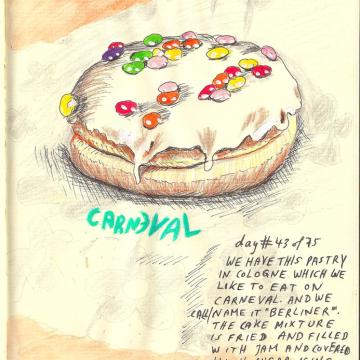 CARNEVAL
day# 43 of 75
WE HAVE THIS PASTRY
IN COLOGNE WHICH WE
LIKE TO EAT ON
CARNEVAL. AND WE
CALL/NAME IT "BERLINER".
THE CAKE MIXTURE
IS FRIED AND FILLED
WITH JAM AND COVERED